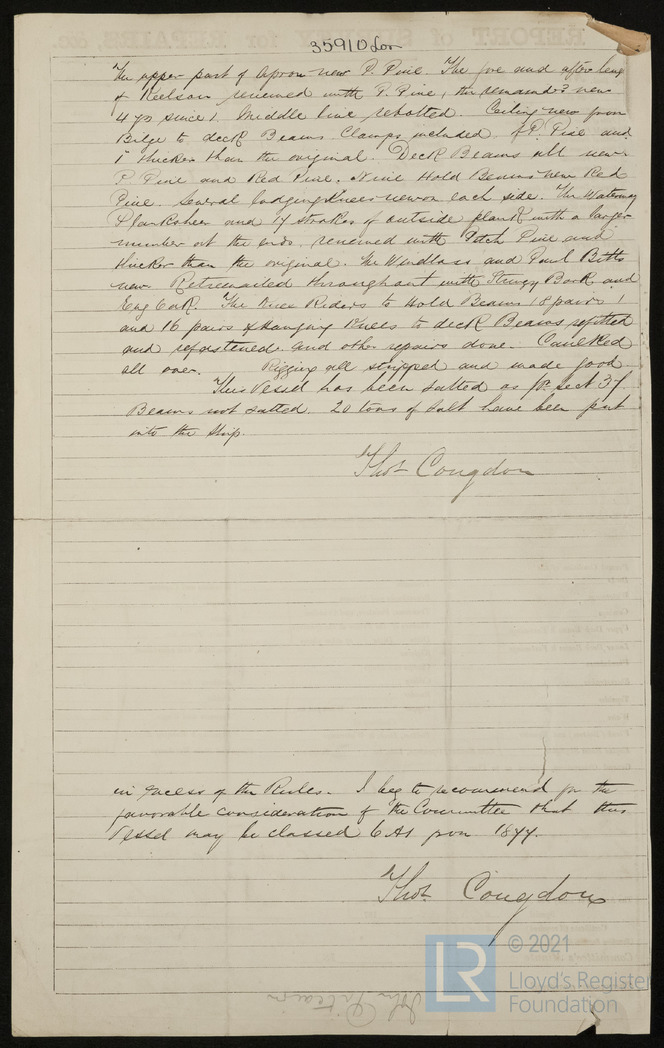 35910 Lon
The upper part of Apron new P. Pine. The fore and after leng
of Keelson renewed with P. Pine, the remaindr new
4 yrs since, Middle line rebolted. Ceiling new from
Bilge to deck Beams Clamps included of P. Pine and
1" thicker than the original. Deck Beams all new
P. Pine and Red Pine. Nine Hold Beams new Red
Pine. Several lodging Knees new on each side. The Waterway
Planksheer and 17 strakes of outside plank with a larger
number at the ends, renewed with Pitch Pine and
thicker than the original. The Windlass and Paul Bitts
new. Retreenailed throughout with Stringy Bark and
Eng Oak. The Knee Riders to Hold Beams 18 pairs
and 16 pairs of Hanging Knees to deck Beams refitted
and refastened and other repairs done. Caulked
all over. Rigging all stripped and made good
This Vessel has been salted as pr Sect 37
Beams not salted. 20 tons of Salt have been put
into the Ship.
Thos Congdon
in excess of the Rules. I beg to recommend for the
favorable consideration of the Committee that this
Vessel may be classed 6 A1 from 1877.
Thos. Congdon
LR © 2021
Lloyd's Register
Foundation